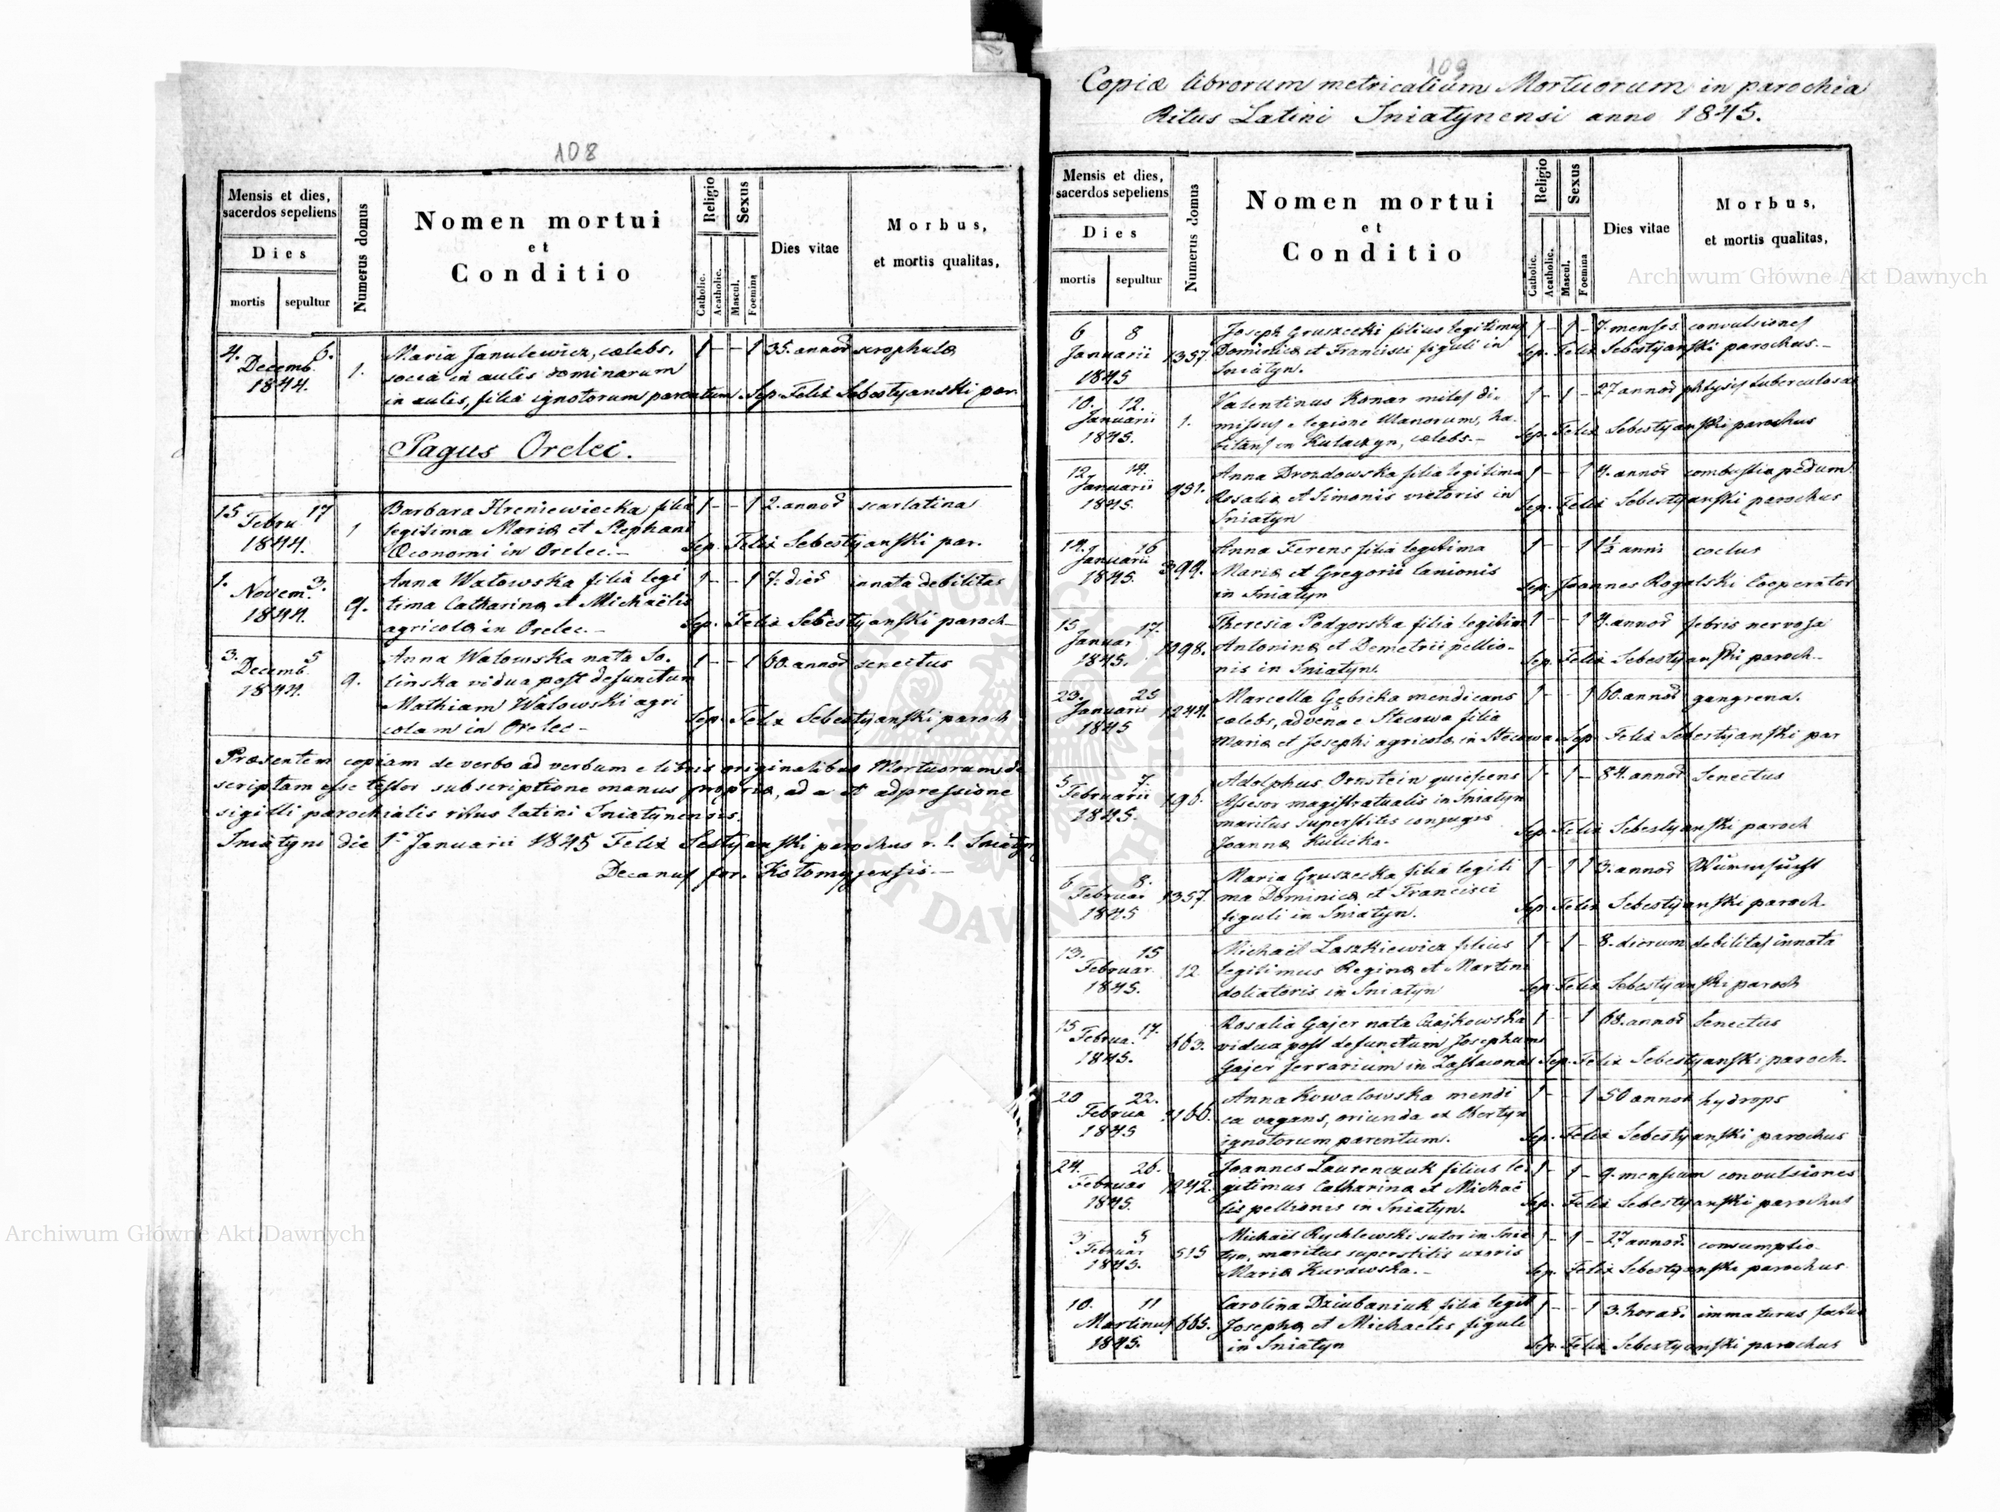 108
Mensis et dies,
sacerdos sepeliens
Dies
mortis
sepultur
Numerus domus
Nomen mortui
et
Conditio
Religio
Catholic.
Acatholic.
Sexus
Mascul.
Foemina
Dies vitae
Morbus,
et mortis qualitas,
4. 6. Decemb. 1844. 1. Maria Janulewicz, cælebs, 1 - - 1 35. annor scrophulæ
socia in aulis dominarum
in aulis, filia ignotorum parentum Sep. Felix Sebestyanski par.
Pagus Orelec.
15 17 Febru 1844. 1 Barbara Kreniewiecka filia 1 - - 1 2. annor scarlatina
legitima Mariæ et Stephani
Œconomi in Orelec. - Sep. Felix Sebestyanski par.
1. 3. Novem. 1844. 9. Anna Watowska filia legi 1 - - 1 7. dier innata debilitas
tima Catharinæ et Michaëlis
agricolæ in Orelec. - Sep. Felix Sebestyanski paroch
3. 5 Decemb. 1844. 9. Anna Watowska nata So- 1 - - 1 60. annor senectus
linska vidua post defunctum
Mathiam Watowski agri
colam in Orelec - Sep. Felix Sebestyanski paroch
Præsentem copiam de verbo ad verbum e libris originalibus Mortuorum de
scriptam esse testor subscriptione manus propriæ, ad et adpressione
sigilli parochialis ritus latini Sniatynensis.
Sniatyni die 1a Januarii 1845 Felix Sestyanski parochus r. l. Sniatyn
Decanus for. Kolomyjensis. -
109
Copiæ librorum metricalium Mortuorum in parochia
Ritus Latini Sniatynensi anno 1845.
Mensis et dies,
sacerdos sepeliens
Dies
mortis
sepultur
Numerus domus
Nomen mortui
et
Conditio
Religio
Catholic.
Acatholic.
Sexus
Mascul.
Foemina
Dies vitae
Morbus,
et mortis qualitas,
6 8 Januarii 1845 1357. Joseph Gruszecki filius legitimus 1 - 1 - 7. menses convulsiones
Dominicæ et Francisci figuli in Sep. Felix Sebestyanski parochus. -
Sniatyn.
10. 12. Januarii 1845. 1. Valentinus Konar miles di- 1 - 1 - 27 annor phtysis tuberculosa
missus e legione Ulanorum, ha-
bitans in Kulaczyn, cælebs. - Sep. Felix Sebestyanski parochus
12 14. Januarii 1845. 951. Anna Drozdowska filia legitima 1 - - 1 4. annor combustio pedum
Rosaliæ et Simonis vietoris in Sep. Felix Sebestyanski parochus
Sniatyn
14. 16 Januarii 1845. 399. Anna Ferens filia legitima 1 - - 1 1½ annis coctus
Mariæ et Gregorii lanionis Sep. Joannes Rogalski Cooperator
in Sniatyn
15 17. Januar 1845. 1098. Theresia Podgorska filia legitim 1 - - 1 4. annor febris nervosa
Antoninæ et Demetrii pellio-
nis in Sniatyn. Sep. Felix Sebestyanski paroch. -
23. 25 Januarii 1845 1244. Marcella Gębicka mendicans 1 - - 1 60. annor gangrena.
cælebs, advena e Stecowa filia
Mariæ et Josephi agricolæ in Stecowa Sep. Felix Sebestyanski par
5 7. Februarii 1845. 196. Adolphus Ornstein quiescens 1 - 1 - 84. annor Senectus
Assesor magistratualis in Sniatyn
maritus superstitis conjugis Sep. Felix Sebestyanski paroch
Joannæ Kulicka.
6 8. Februar 1845 1357. Maria Gruszecka filia legiti 1 - 1 1 3. annor Würmsucht
ma Dominicæ et Francisci
figuli in Sniatyn. Sep. Felix Sebestyanski paroch.
13. 15 Februar. 1845. 12 Michaël Laszkiewicz filius 1 - 1 - 8. dierum debilitas innata
legitimus Reginæ et Martini
doliatoris in Sniatyn Sep. Felix Sebestyanski paroch
15 17. Februa. 1845. 663. Rosalia Gajer nata Czajkowska 1 - - 1 68. annor Senectus
vidua post defunctum Josephum
Gajer ferrarium in Sep. Felix Sebestyanski paroch.
20 22. Februa 1845 Anna Kowalowska mendi 1 - - 1 50 annor hydrops
ca vagans, oriunda ex Obertyn
ignotorum parentum. Sep. Felix Sebestyanski parochus
24. 26. Februar 1845. 1242. Joannes Laurenczuk filius le- 1 - 1 - 9. mensium convulsiones
gitimus Catharinæ et Michaë
lis pellionis in Sniatyn. Sep. Felix Sebestyanski parochus
3 5 Februar 1845. 515 Michaël Rychlewski sutor in Snia 1 - 1 - 27 annor. consumptio
tyn, maritus superstitis uxoris
Mariæ Kurowska. - Sep. Felix Sebestyanski parochus
10. 11 Martinus 1845. 665. Carolina Dziubaniuk filia legit 1 - - 1 3. horar. immaturus foetus
Josephæ et Michaelis figuli
in Sniatyn Sep. Felix Sebestyanski parochus
Archiwum Główne Akt Dawnych
Archiwum Główne Akt Dawnych
ARCHIWUM GŁÓWNE AKT DAWNYCH